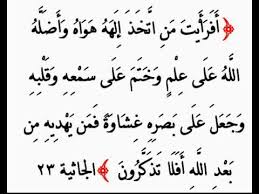 ﴿أَفَرَأَيْتَ مَنِ اتَّخَذَ إِلَهَهُ هَوَاهُ وَأَضَلَّهُ
اللَّهُ عَلَى عِلْمٍ وَخَتَمَ عَلَى سَمْعِهِ وَقَلْبِهِ
وَجَعَلَ عَلَى بَصَرِهِ غِشَاوَةً فَمَن يَهْدِيهِ مِن
بَعْدِ اللَّهِ أَفَلَا تَذَكَّرُونَ﴾ الجاثية ٢٣